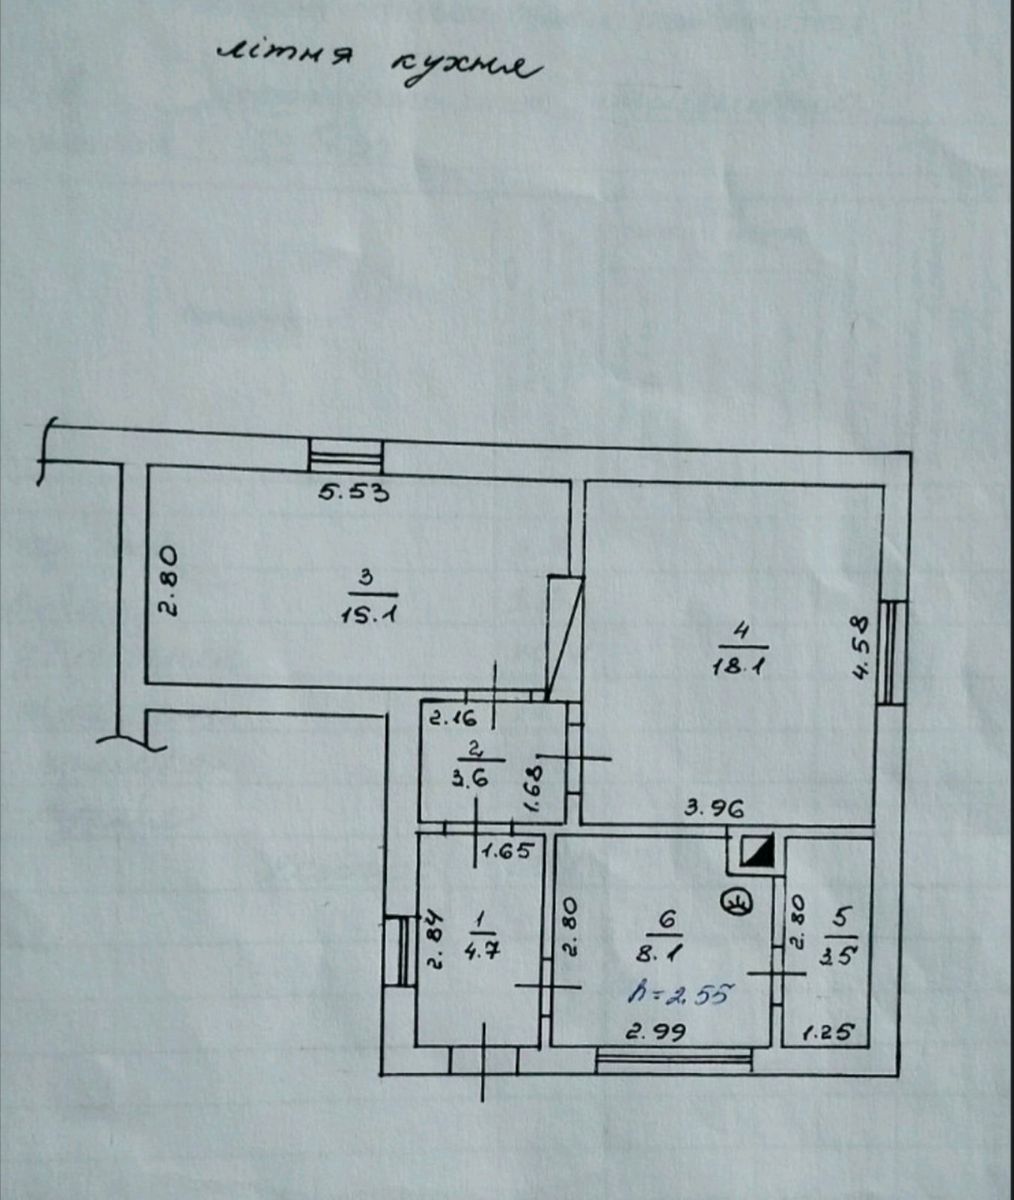 літня кухня
5.53
2.80
3
15.1
4
18.1
4.58
2.16
2
3.6
1.68
3.96
1.65
2.84
1
4.7
2.80
6
8.1
h=2.55
2.99
2.80
5
3.5
1.25